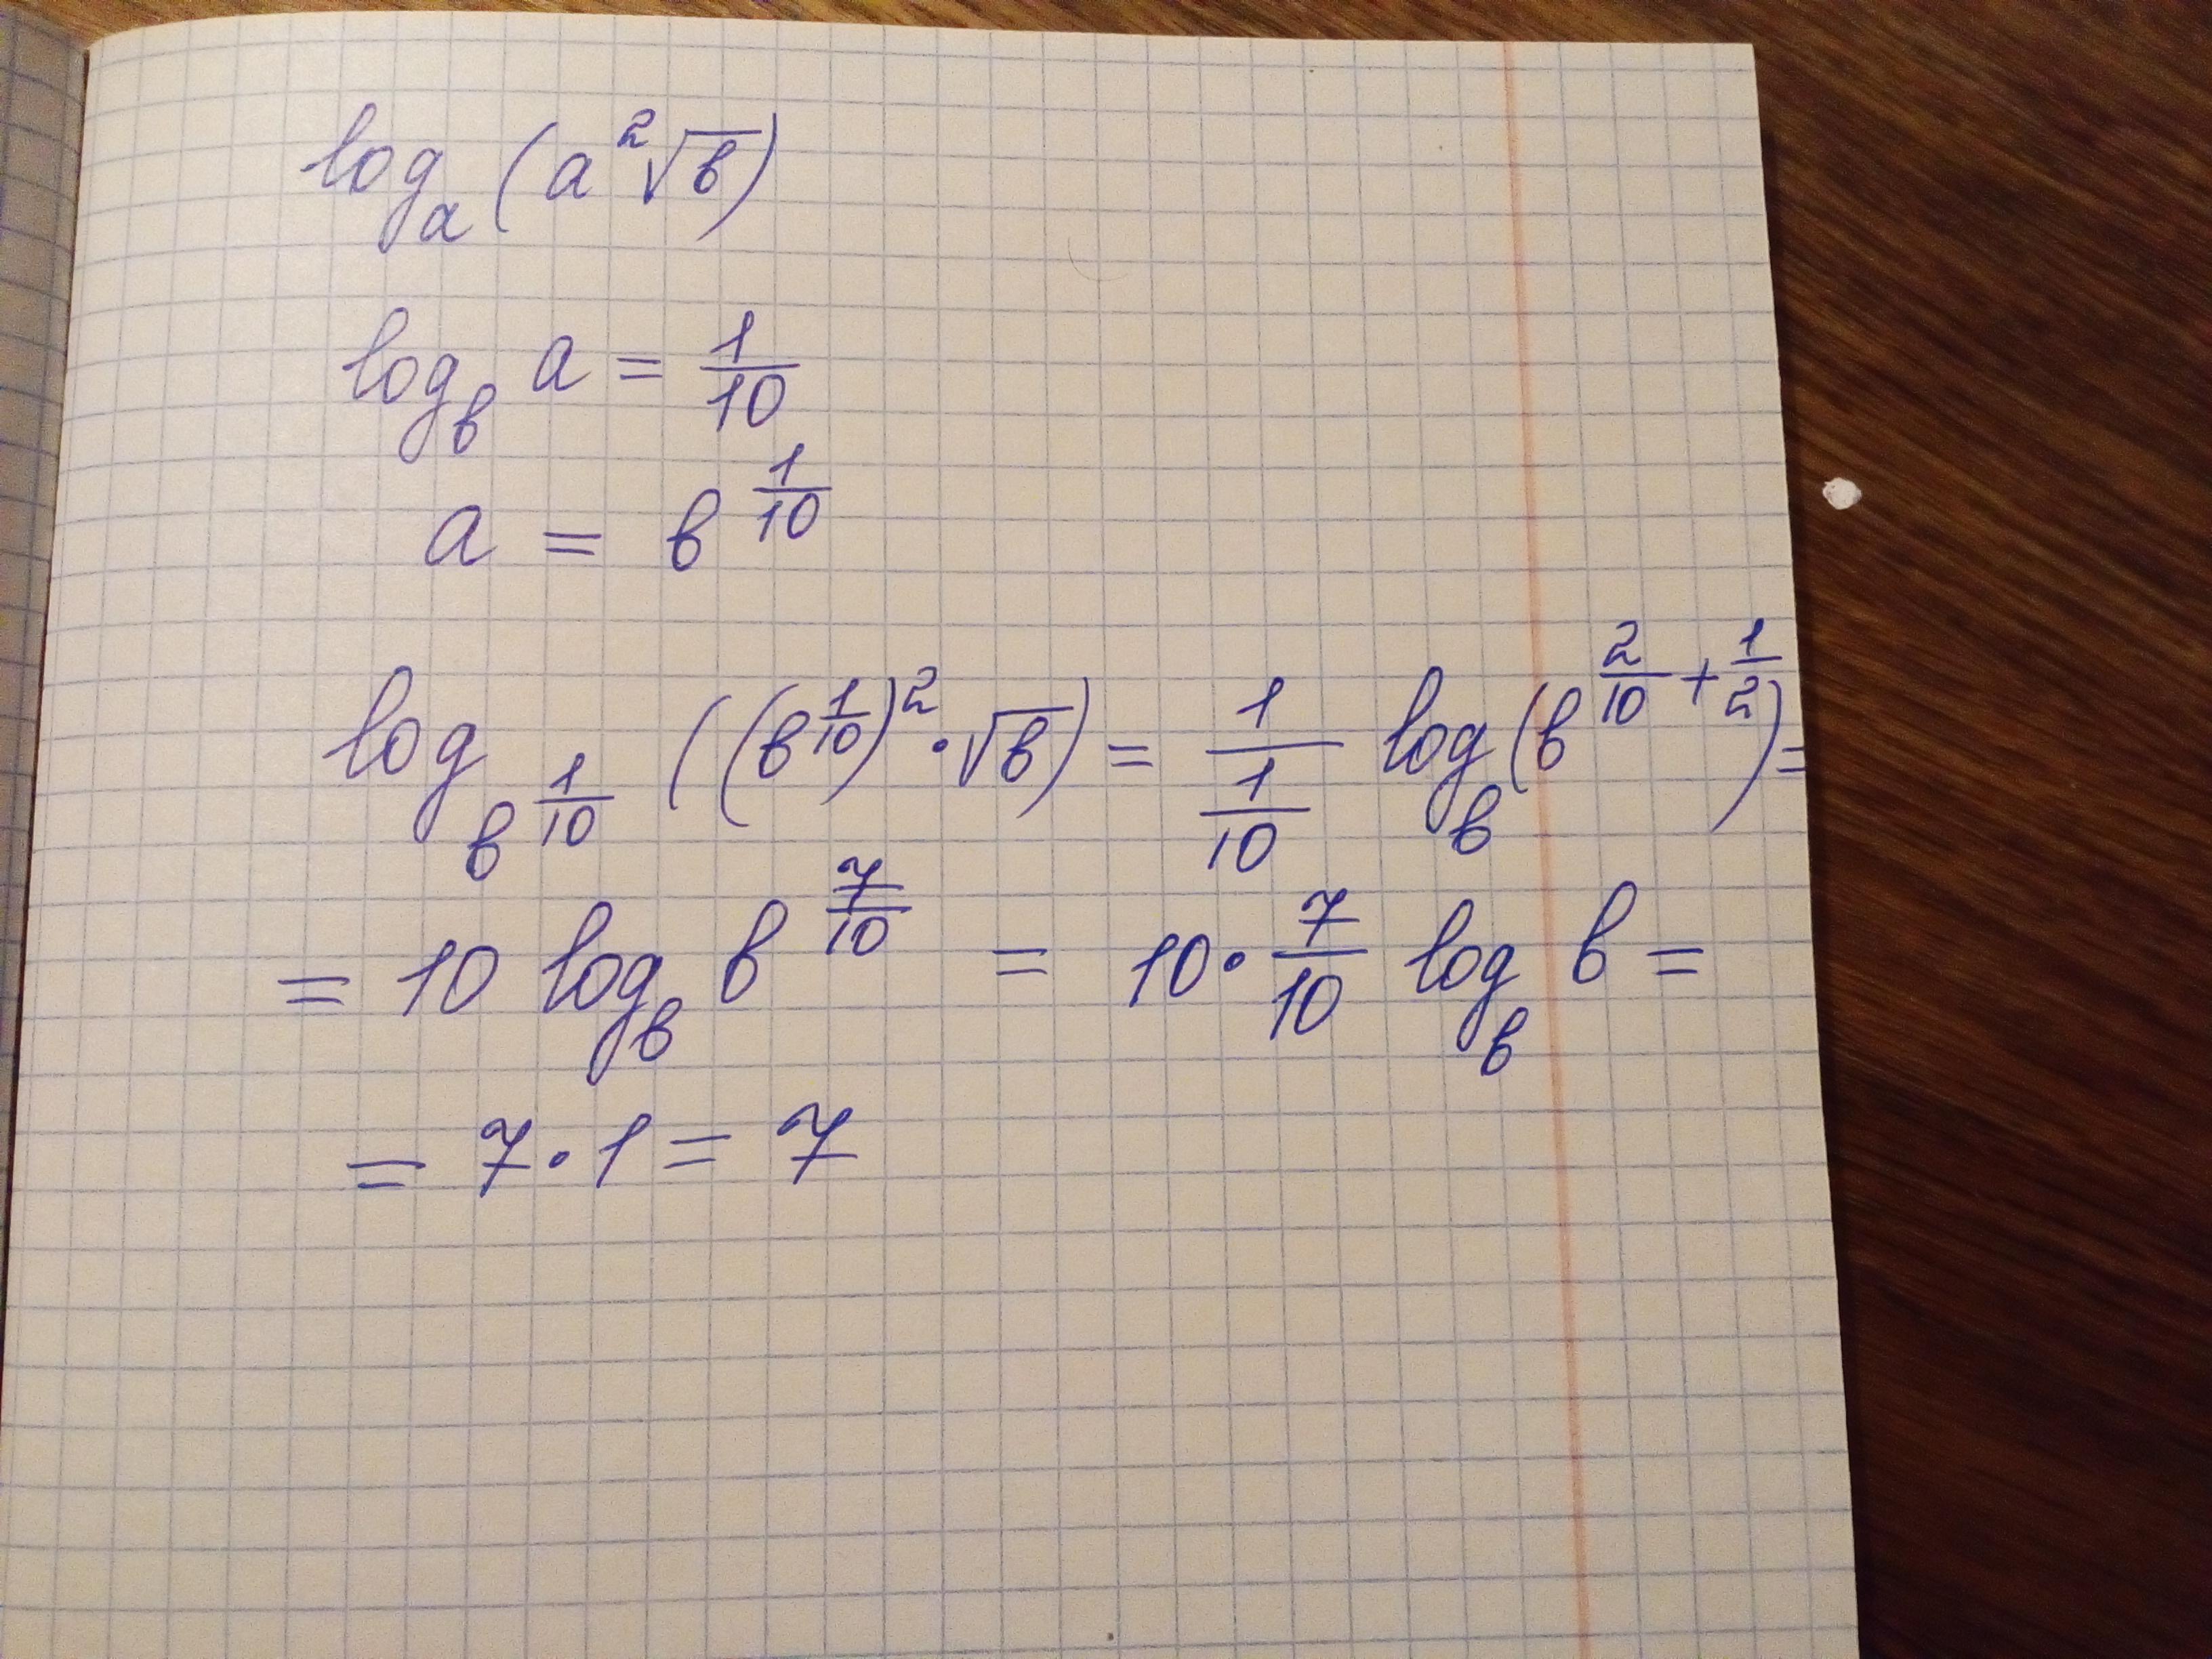 logₐ (a²√b)
log_b a = 1/10
a = b^(1/10)
log_(b^(1/10)) ((b^(1/10))² · √b) = 1/(1/10) log_b (b^(2/10 + 1/2)) =
= 10 log_b b^(7/10) = 10 · 7/10 log_b b =
= 7 · 1 = 7